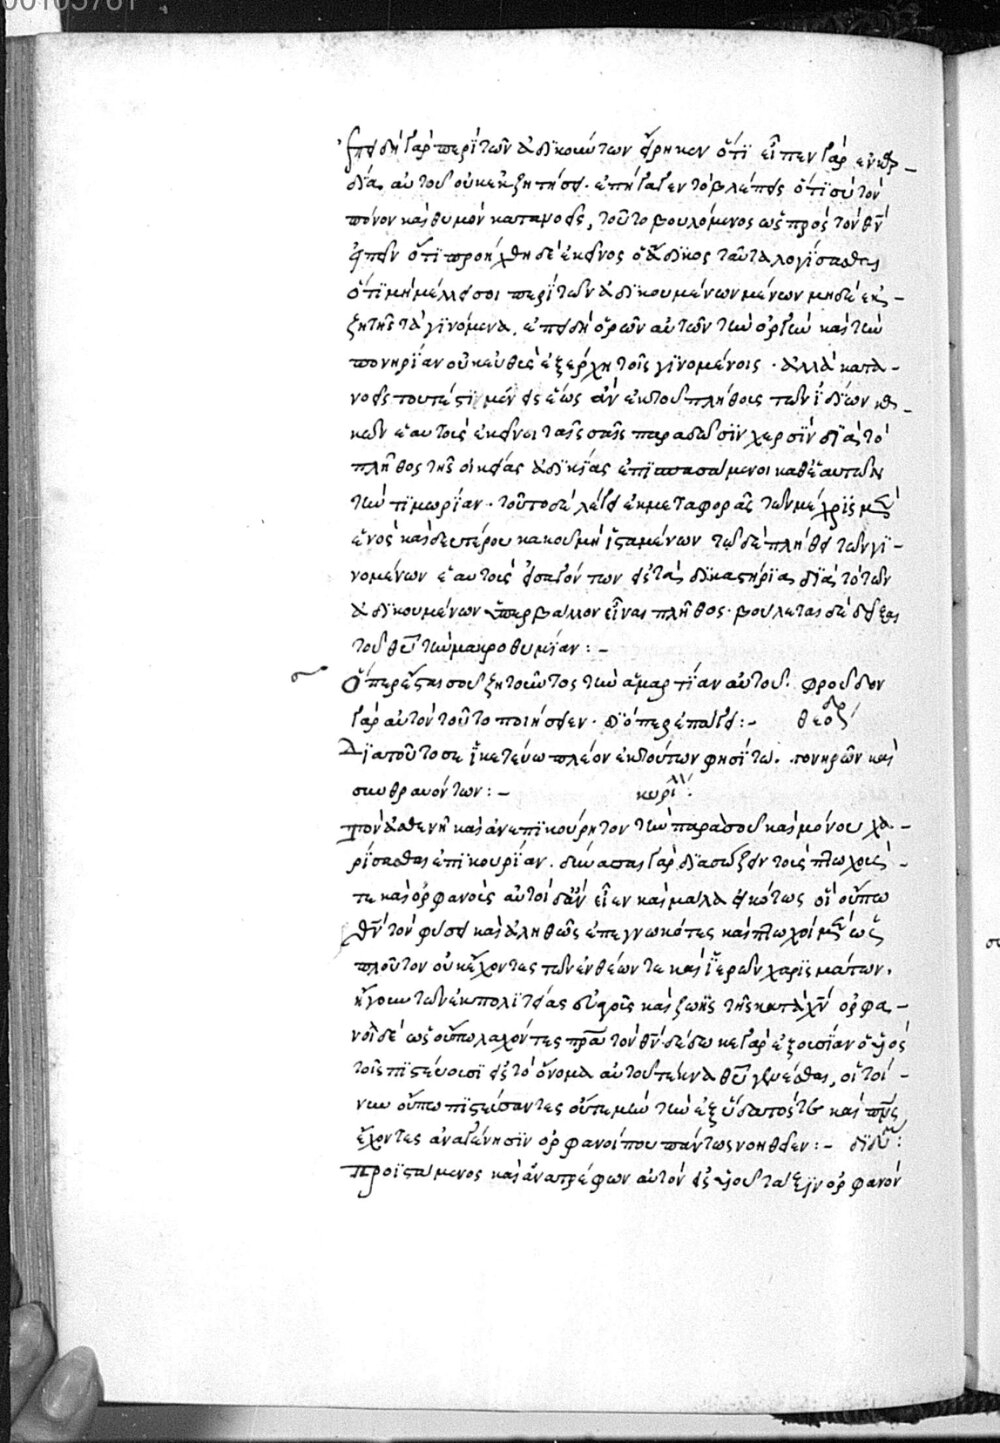 ἐπειδὴ γὰρ περὶ τῶν ἀδικούντων εἴρηκεν ὅτι εἶπεν γὰρ ἐν καρ-
δίᾳ αὐτοῦ οὐκ ἐκζητήσει· ἐπήγαγεν τὸ βλέπεις ὅτι σὺ τὸν
πόνον καὶ θυμὸν κατανοεῖς, τοῦτο βουλόμενος ὡς πρὸς τὸν θν
εἰπεῖν ὅτι προήχθη δὲ ἐκεῖνος ὁ ἄδικος ταῦτα λογίσασθαι
ὅτι μὴ μέλλει σοι περὶ τῶν ἀδικουμένων μένων μηδὲ ἐκ-
ζητεῖς τὰ γινόμενα, ἐπειδὴ ὁρῶν αὐτῶν τὴν ὀργὴν καὶ τὴν
πονηρίαν οὐκ εὐθὺς ἐξέρχῃ τοῖς γινομένοις· ἀλλὰ κατα-
νοεῖς τουτέστι μένεις ἕως ἂν ἐκ τοῦ πλήθους τῶν ἰδίων κα-
κῶν ἑαυτοὺς ἐκεῖνοι ταῖς σαῖς παραδῶσιν χερσὶν διὰ τὸ
πλῆθος τῆς οἰκείας ἀδικίας ἐπισπασάμενοι καθ ἑαυτῶν
τὴν τιμωρίαν· τοῦτο δὲ λέγει ἐκ μεταφορᾶς τῶν μέχρις μὲν
ἑνὸς καὶ δευτέρου κακοῦ μὴ ἱσταμένων τῷ δὲ πλήθει τῶν γι-
νομένων ἑαυτοὺς εἰσαγόντων εἰς τὰ δικαστήρια διὰ τὸ τῶν
ἀδικουμένων ὑπερβάλλον εἶναι πλῆθος· βούλεται δὲ δεῖξαι
τοῦ θυ τὴν μακροθυμίαν: -
Ὅπερ ἔσται σοῦ ζητοῦντος τὴν ἁμαρτίαν αὐτοῦ· φροῦδον
γὰρ αὐτὸν τοῦτο ποιήσειεν· διόπερ ἐπάγει: - θεοδρ
Διὰ τοῦτό σε ἱκετεύω πλέον ἐκ τούτων φησὶ τῶν πονηρῶν καὶ
συνθραυόντων: - κυρίλλ:
Τὸν ἀσθενῆ καὶ ἀνεπικούρητον τὴν παρὰ σοῦ καὶ μόνου χα-
ρίσασθαι ἐπικουρίαν. δύνασαι γὰρ διασώζειν τοὺς πτωχοὺς
τε καὶ ὀρφανοὺς αὐτοὶ δ ἂν εἶεν καὶ μάλα εἰκότως οἱ οὔπω
θν τὸν φύσει καὶ ἀληθῶς ἐπεγνωκότες καὶ πτωχοὶ μὲν ὡς
πλοῦτον οὐκ ἔχοντες τῶν ἐνθέων τε καὶ ἱερῶν χαρισμάτων,
ἤγουν τῶν ἐκ πολιτείας εὐαγοῦς καὶ ζωῆς τῆς κατὰ χν ὀρφα-
νοὶ δὲ ὡς οὔπω λαχόντες πρα τὸν θν· δέδωκε γὰρ ἐξουσίαν ὁ υἱὸς
τοῖς πιστεύουσι εἰς τὸ ὄνομα αὐτοῦ τέκνα θυ γενέσθαι, οἱ τοί-
νυν οὔπω πιστεύσαντες οὔτε μὴν τὴν ἐξ ὕδατός τε καὶ πνς
ἔχοντες ἀναγέννησιν ὀρφανοί που πάντως νοηθεῖεν: - διδυμ:
Προϊστάμενος καὶ ἀνατρέφων αὐτὸν εἰς υἱοῦ τάξιν ὀρφανὸν